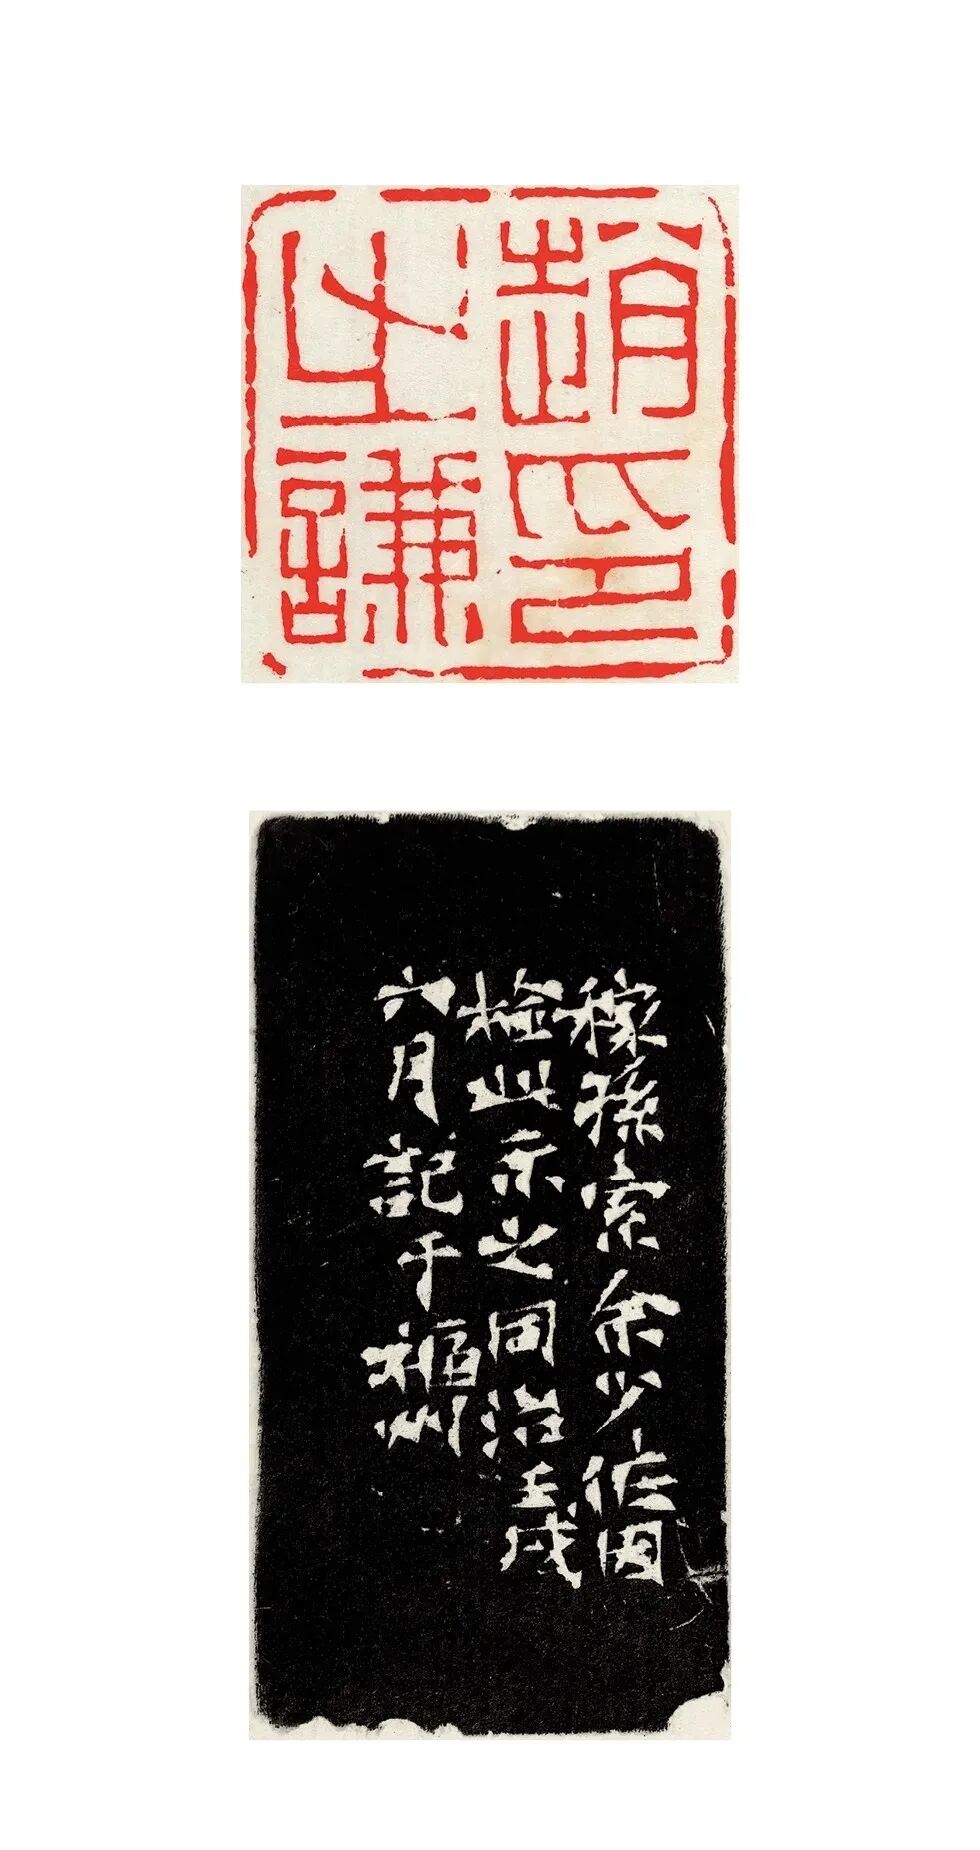 趙印
之謙
稼孫索余少作因
檢此示之同治壬戌
六月記于福州